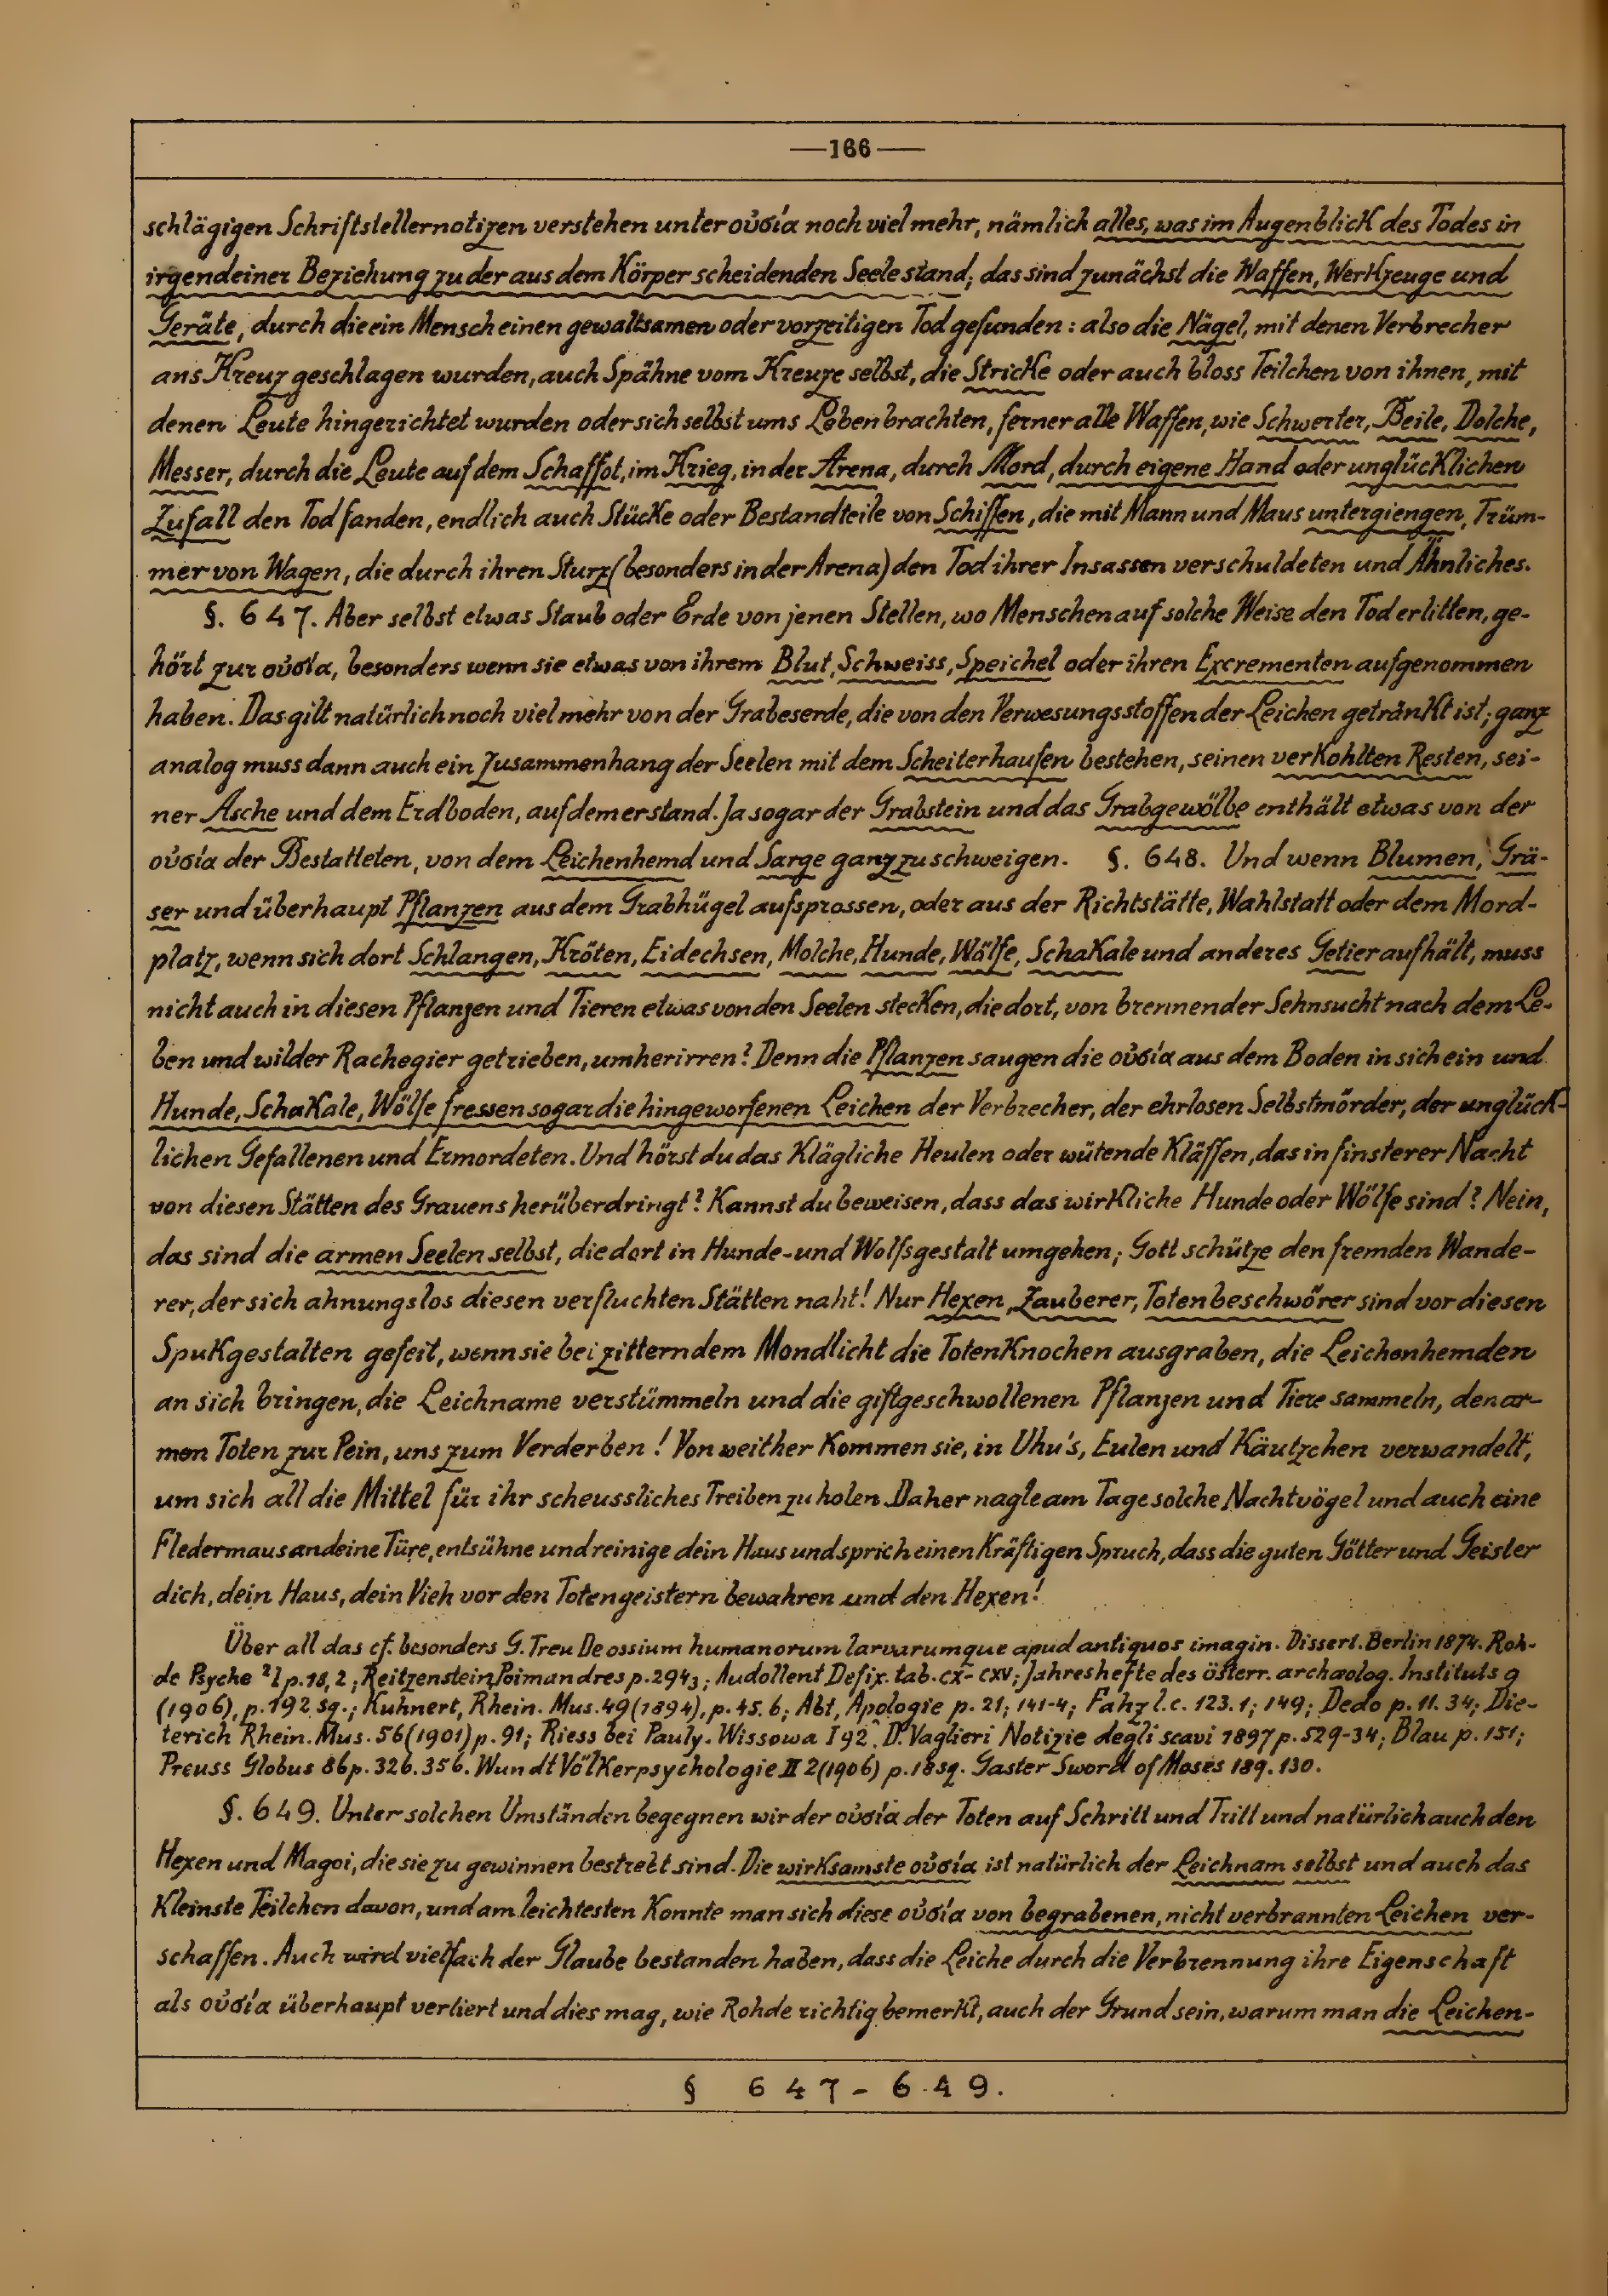 —166—
schlägigen Schriftstellernotizen verstehen unter οὐσία noch viel mehr, nämlich alles, was im Augenblick des Todes in
irgendeiner Beziehung zu der aus dem Körper scheidenden Seele stand; das sind zunächst die Waffen, Werkzeuge und
Geräte, durch die ein Mensch einen gewaltsamen oder vorzeitigen Tod gefunden: also die Nägel, mit denen Verbrecher
ans Kreuz geschlagen wurden, auch Spähne vom Kreuze selbst, die Stricke oder auch bloss Teilchen von ihnen, mit
denen Leute hingerichtet wurden oder sich selbst ums Leben brachten, ferner alle Waffen, wie Schwerter, Beile, Dolche,
Messer, durch die Leute auf dem Schaffot, im Krieg, in der Arena, durch Mord, durch eigene Hand oder unglücklichen
Zufall den Tod fanden, endlich auch Stücke oder Bestandteile von Schiffen, die mit Mann und Maus untergiengen, Trüm-
mer von Wagen, die durch ihren Sturz (besonders in der Arena) den Tod ihrer Insassen verschuldeten und Ähnliches.
§. 647. Aber selbst etwas Staub oder Erde von jenen Stellen, wo Menschen auf solche Weise den Tod erlitten, ge-
hört zur οὐσία, besonders wenn sie etwas von ihrem Blut, Schweiss, Speichel oder ihren Excrementen aufgenommen
haben. Das gilt natürlich noch viel mehr von der Grabeserde, die von den Verwesungsstoffen der Leichen getränkt ist; ganz
analog muss dann auch ein Zusammenhang der Seelen mit dem Scheiterhaufen bestehen, seinen verkohlten Resten, sei-
ner Asche und dem Erdboden, auf dem er stand. Ja sogar der Grabstein und das Grabgewölbe enthält etwas von der
οὐσία der Bestatteten, von dem Leichenhemd und Sarge ganz zu schweigen. §. 648. Und wenn Blumen, Grä-
ser und überhaupt Pflanzen aus dem Grabhügel aufsprossen, oder aus der Richtstätte, Wahlstatt oder dem Mord-
platz, wenn sich dort Schlangen, Kröten, Eidechsen, Molche, Hunde, Wölfe, Schakale und anderes Getier aufhält, muss
nicht auch in diesen Pflanzen und Tieren etwas von den Seelen stecken, die dort, von brennender Sehnsucht nach dem Le-
ben und wilder Rachegier getrieben, umherirren? Denn die Pflanzen saugen die οὐσία aus dem Boden in sich ein und
Hunde, Schakale, Wölfe fressen sogar die hingeworfenen Leichen der Verbrecher, der ehrlosen Selbstmörder, der unglück-
lichen Gefallenen und Ermordeten. Und hörst du das klägliche Heulen oder wütende Kläffen, das in finsterer Nacht
von diesen Stätten des Grauens herüberdringt? Kannst du beweisen, dass das wirkliche Hunde oder Wölfe sind? Nein,
das sind die armen Seelen selbst, die dort in Hunde- und Wolfsgestalt umgehen; Gott schütze den fremden Wande-
rer, der sich ahnungslos diesen verfluchten Stätten naht! Nur Hexen, Zauberer, Totenbeschwörer sind vor diesen
Spukgestalten gefeit, wenn sie bei zitterndem Mondlicht die Totenknochen ausgraben, die Leichenhemden
an sich bringen, die Leichname verstümmeln und die giftgeschwollenen Pflanzen und Tiere sammeln, den ar-
men Toten zur Pein, uns zum Verderben! Von weither kommen sie, in Uhu's, Eulen und Käutzchen verwandelt,
um sich all die Mittel für ihr scheussliches Treiben zu holen. Daher nagle am Tage solche Nachtvögel und auch eine
Fledermaus an deine Türe, entsühne und reinige dein Haus und sprich einen kräftigen Spruch, dass die guten Götter und Geister
dich, dein Haus, dein Vieh vor den Totengeistern bewahren und den Hexen!
Über all das cf. besonders G. Treu De ossium humanorum larvarumque apud antiquos imagin. Dissert. Berlin 1874. Roh-
de Psyche ²I p. 18, 2; Reitzenstein, Poimandres p. 294₃; Audollent Defix. tab. CX-CXV; Jahreshefte des österr. archæolog. Instituts 9
(1906), p. 192 sq.; Kuhnert, Rhein. Mus. 49 (1894), p. 45. 6; Abt, Apologie p. 21; 141-4; Fahz l.c. 123. 1; 149; Dedo p. 11. 34; Die-
terich Rhein. Mus. 56 (1901) p. 91; Riess bei Pauly-Wissowa I 92; D. Vaglieri Notizie degli scavi 1897 p. 529-34; Blau p. 151;
Preuss Globus 86 p. 326. 356. Wundt Völkerpsychologie II 2 (1906) p. 18 sq. Gaster Sword of Moses 189. 130.
§. 649. Unter solchen Umständen begegnen wir der οὐσία der Toten auf Schritt und Tritt und natürlich auch den
Hexen und Magoi, die sie zu gewinnen bestrebt sind. Die wirksamste οὐσία ist natürlich der Leichnam selbst und auch das
kleinste Teilchen davon, und am leichtesten konnte man sich diese οὐσία von begrabenen, nicht verbrannten Leichen ver-
schaffen. Auch wird vielfach der Glaube bestanden haben, dass die Leiche durch die Verbrennung ihre Eigenschaft
als οὐσία überhaupt verliert und dies mag, wie Rohde richtig bemerkt, auch der Grund sein, warum man die Leichen-
§ 647-649.